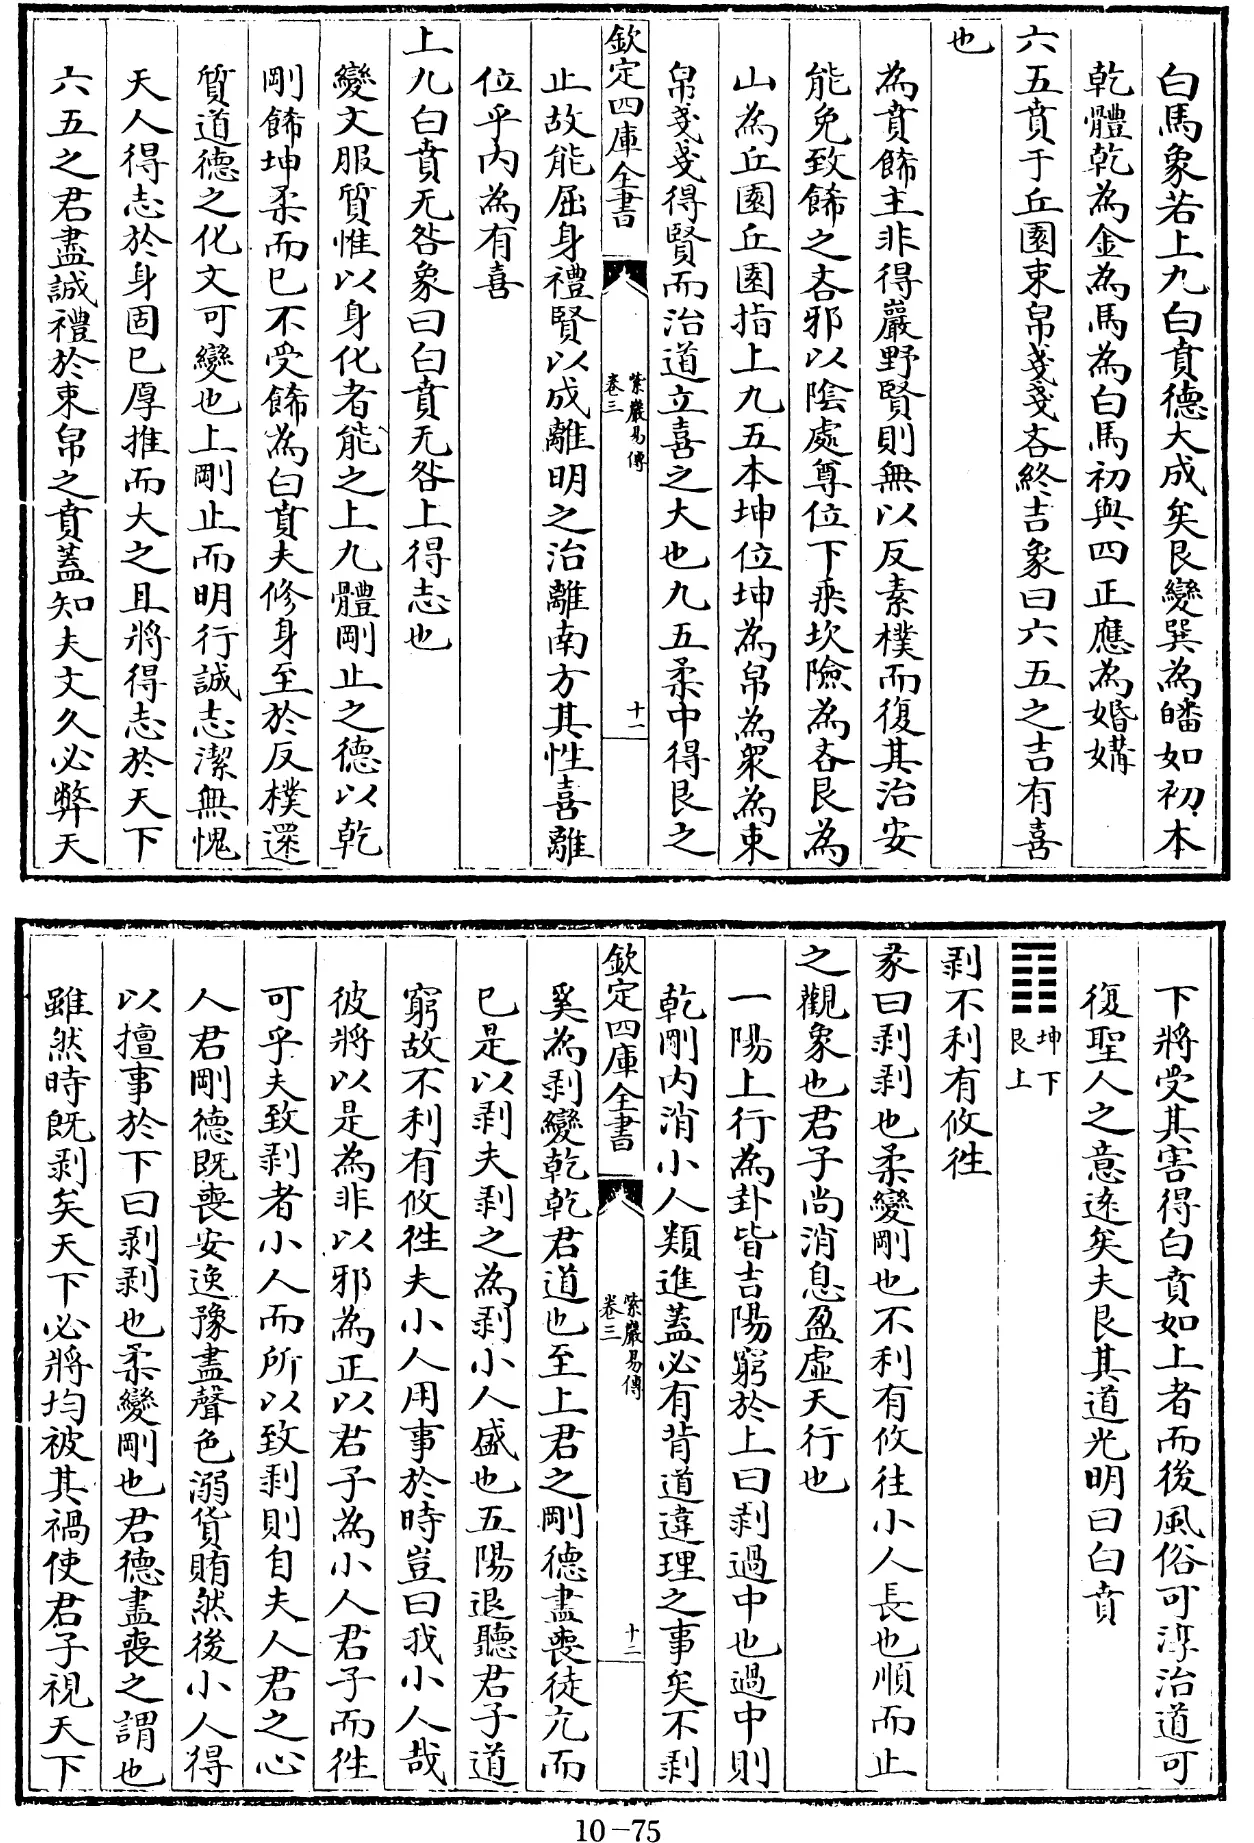 白馬象若上九白賁德大成矣艮變巽為皤如初本
乾體乾為金為馬為白馬初與四正應為婚媾
六五賁于丘園束帛戔戔吝終吉象曰六五之吉有喜
也
為賁飾主非得巖野賢則無以反素樸而復其治安
能免致飾之吝邪以陰處尊位下乘坎險為吝艮為
山為丘園丘園指上九五本坤位坤為帛為衆為束
帛戔戔得賢而治道立喜之大也九五柔中得艮之
欽定四庫全書
紫巖易傳
卷三
十一
止故能屈身禮賢以成離明之治離南方其性喜離
位乎内為有喜
上九白賁无咎象曰白賁无咎上得志也
變文服質惟以身化者能之上九體剛止之德以乾
剛飾坤柔而已不受飾為白賁夫修身至於反樸還
質道德之化文可變也上剛止而明行誠志潔無愧
天人得志於身固已厚推而大之且將得志於天下
六五之君盡誠禮於束帛之賁蓋知夫文久必弊天
下將受其害得白賁如上者而後風俗可淳治道可
復聖人之意逺矣夫艮其道光明曰白賁
坤下
艮上
剥不利有攸徃
彖曰剥剥也柔變剛也不利有攸往小人長也順而止
之觀象也君子尚消息盈虚天行也
一陽上行為卦皆吉陽窮於上曰剥過中也過中則
乾剛内消小人類進蓋必有背道違理之事矣不剥
欽定四庫全書
紫巖易傳
卷三
十二
奚為剥變乾乾君道也至上君之剛德盡喪徒亢而
已是以剥夫剥之為剥小人盛也五陽退聽君子道
窮故不利有攸徃夫小人用事於時豈曰我小人哉
彼將以是為非以邪為正以君子為小人君子而徃
可乎夫致剥者小人而所以致剥則自夫人君之心
人君剛德既喪安逸豫盡聲色溺貨賄然後小人得
以擅事於下曰剥剥也柔變剛也君德盡喪之謂也
雖然時既剥矣天下必將均被其禍使君子視天下
10-75